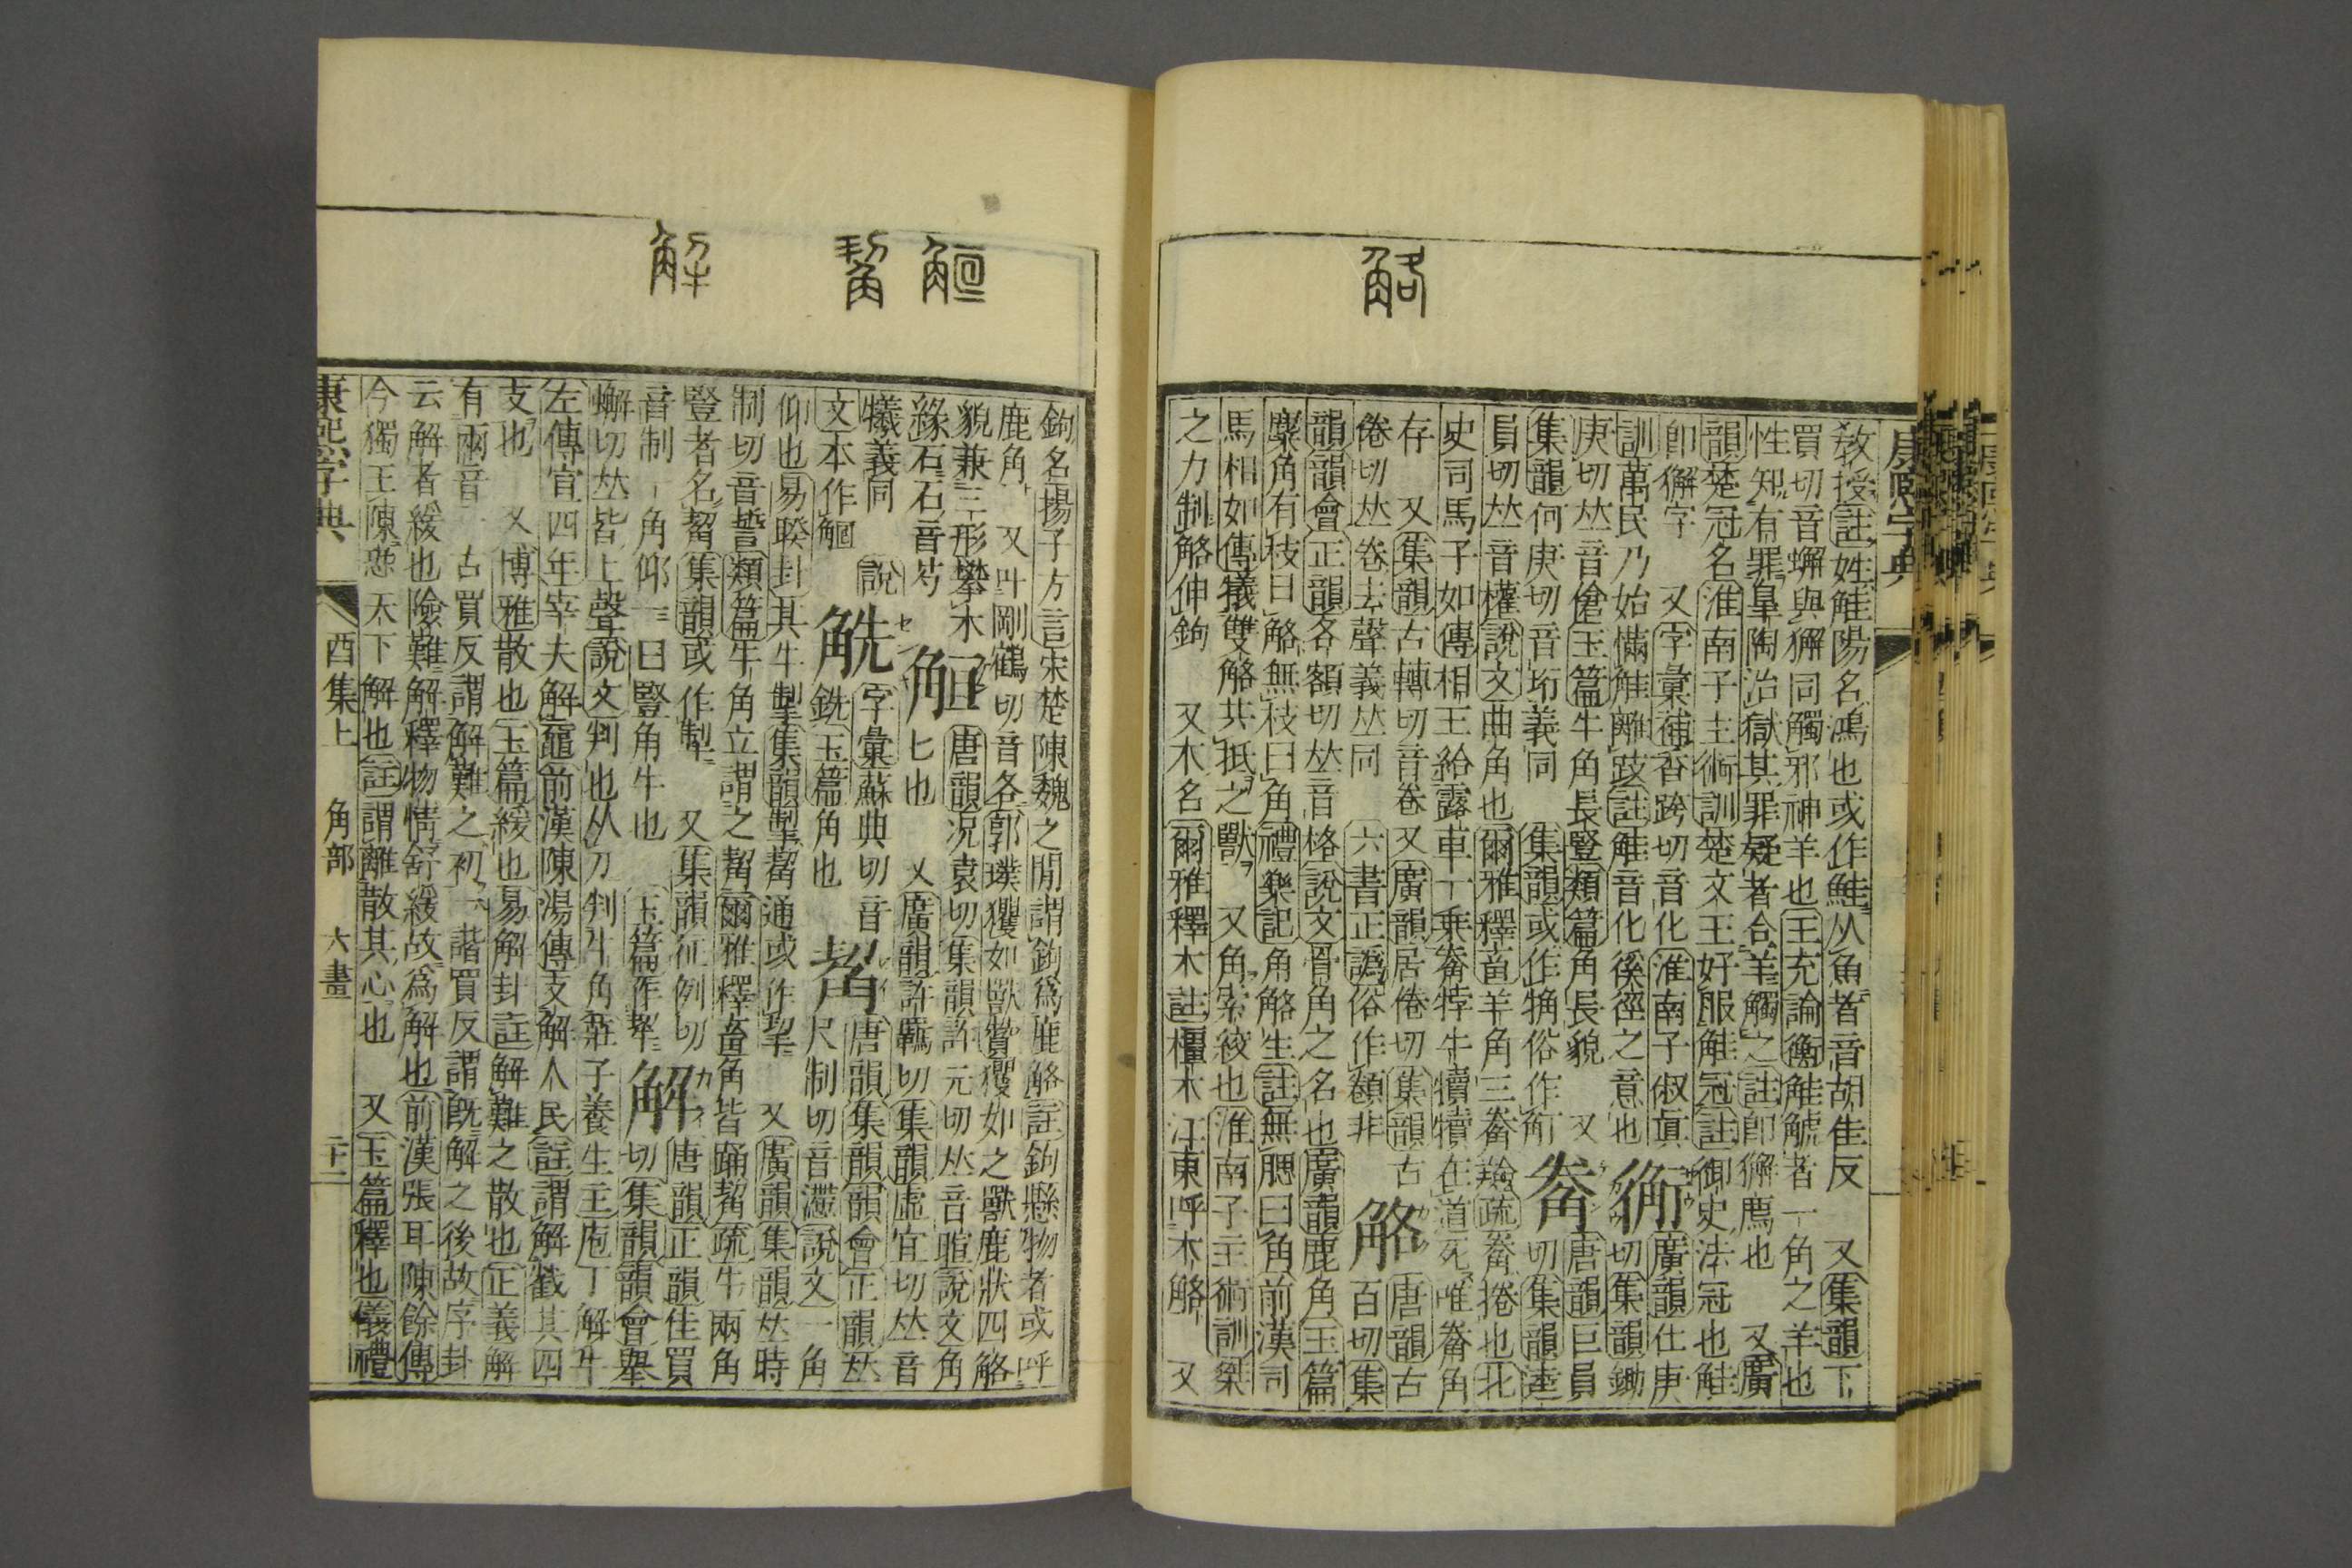 觡
敎授註姓觟陽名鴻也或作鮭从魚者音胡佳反　又集韻下
買切音蠏與獬同觸邪神羊也王充論衡觟𧣾者一角之羊也
性知有罪皐陶治獄其罪疑者令羊觸之註卽獬廌也　又廣
韻楚冠名淮南子主術訓楚文王好服觟冠註御史法冠也觟
卽獬字　又字彙補杏跨切音化淮南子俶眞
訓萬民乃始慲觟離跂註觟音化徯徑之意也
𧗿廣韻仕庚切集韻鋤
庚切𠀤音傖玉篇牛角長豎類篇角長貌　又
集韻何庚切音珩義同　集韻或作觕俗作䚘
觠唐韻巨員切集韻逵
員切𠀤音權說文曲角也爾雅釋畜羊角三觠羷疏觠捲也北
史司馬子如傳相王給露車一乘觠牸牛犢犢在道死唯觠角
存　又集韻古轉切音卷　又廣韻居倦切集韻古
倦切𠀤卷去聲義𠀤同　六書正譌俗作觠非
觡唐韻古百切集
韻韻會正韻各額切𠀤音格說文骨角之名也廣韻鹿角玉篇
麋角有枝曰觡無枝曰角禮樂記角觡生註無䚡曰角前漢司
馬相如傳犧雙觡共抵之獸　又角索綾也淮南子主術訓桀
之力制觡伸鉤　又木名爾雅釋木註橿木江東呼木觡　又
康熙字典
觛
觢
解
鉤名揚子方言宋楚陳魏之閒謂鉤爲鹿觡註鉤懸物者或呼
鹿角　又叶剛鶴切音各郭璞玃如獸贊玃如之獸鹿狀四觡
貌兼三形攀木緣石石音芍
䚙唐韻况袁切集韻許元切𠀤音暄說文角
匕也　又廣韻許羈切集韻虛宜切𠀤音
犧義同　說文本作觛
觥字彙蘇典切音銑玉篇角也
觢唐韻集韻韻會正韻𠀤尺制切音瀱說文一角
仰也易睽卦其牛掣集韻掣觢通或作挈　又廣韻集韻𠀤時
制切音誓類篇牛角立謂之觢爾雅釋畜角皆踊觢疏牛兩角
豎者名觢集韻或作觢　又集韻征例切
音制一角仰一曰豎角牛也　玉篇作犎
解唐韻正韻佳買切集韻韻會舉
蠏切𠀤皆上聲說文判也从刀判牛角莊子養生主庖丁解牛
左傳宣四年宰夫解黿前漢陳湯傳支解人民註謂解截其四
支也　又博雅散也玉篇緩也易解卦註解難之散也正義解
有兩音一古買反謂解難之初一諧買反謂旣解之後故序卦
云解者緩也險難解釋物情舒緩故爲解也前漢張耳陳餘傳
今獨王陳恐天下解也註謂離散其心也　又玉篇釋也儀禮
康熙字典　酉集上　角部　六畫　二十一